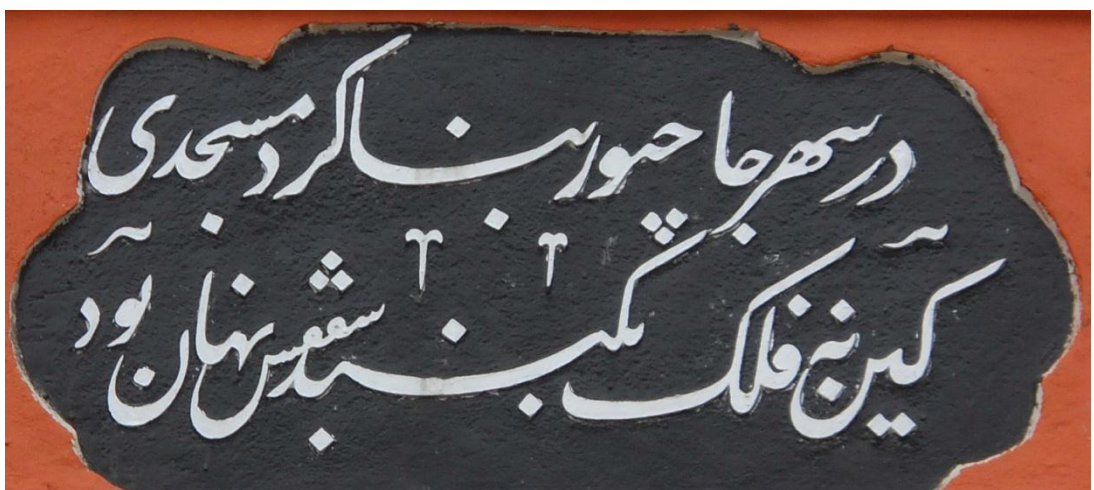 در سهر جاجپور بنا کرد مسجدی
کین نه فلک بگنبد سقفش نهان بود